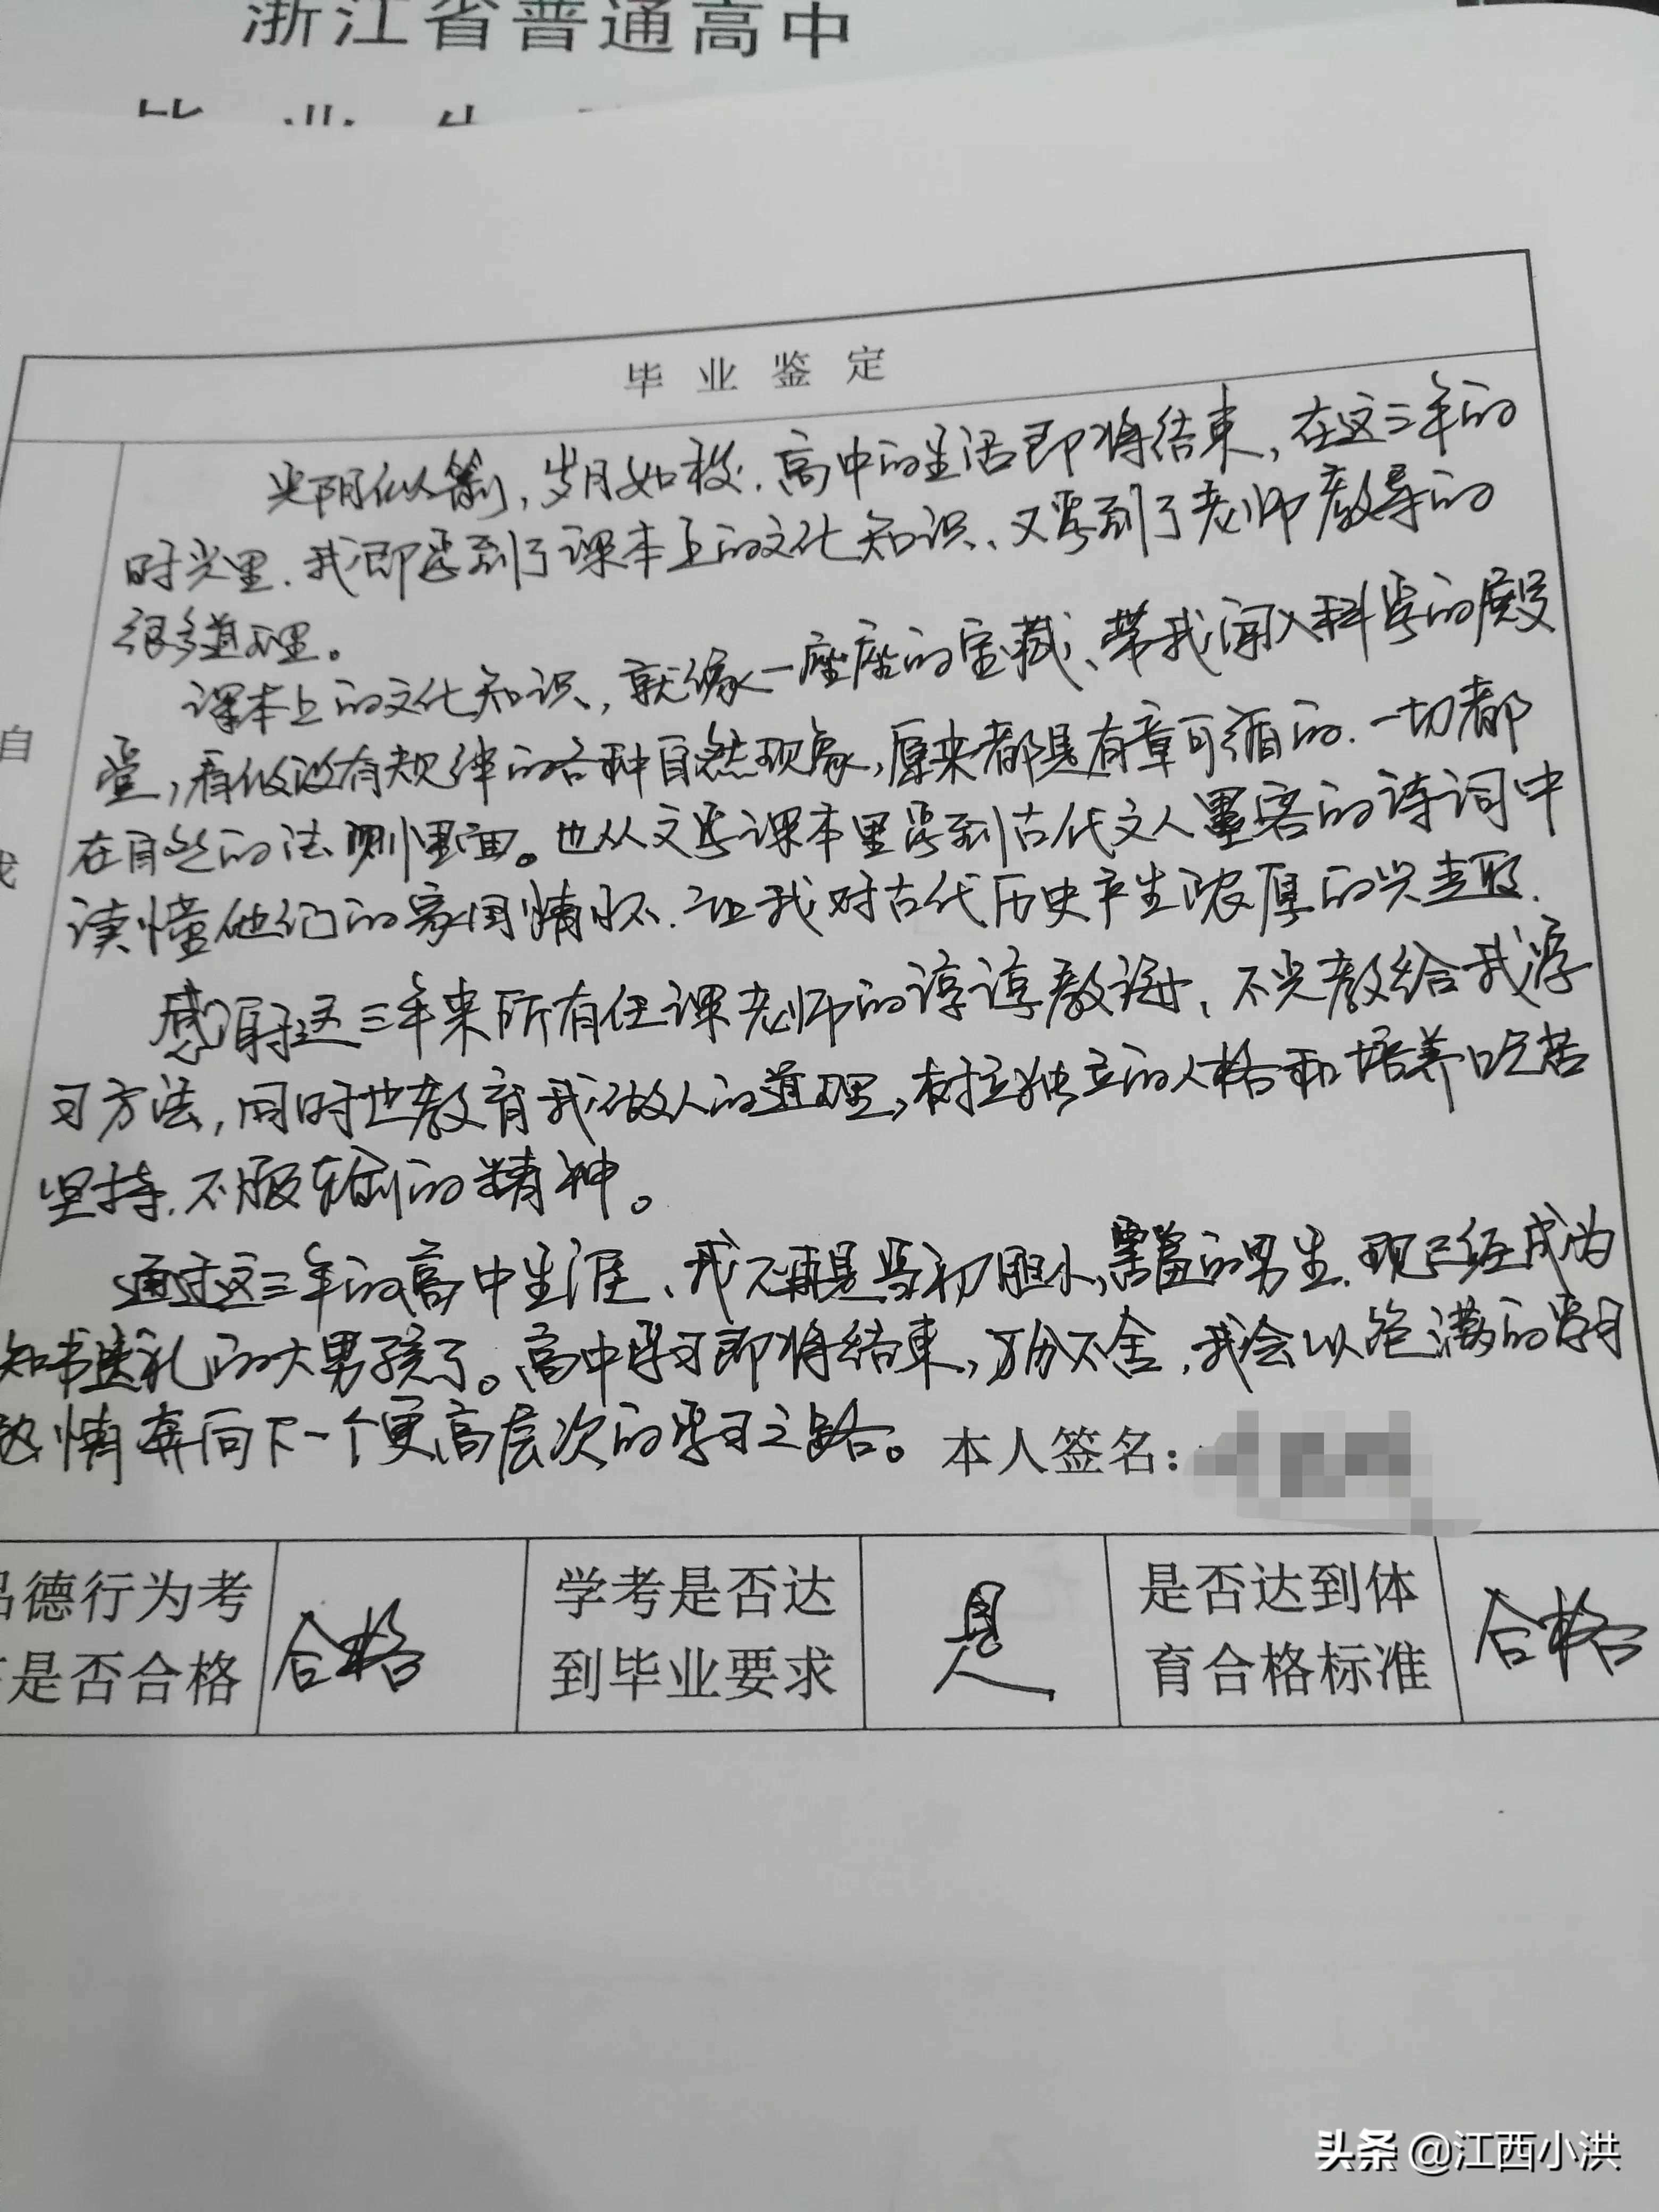 浙江省普通高中
毕业生
毕业鉴定
光阴似箭，岁月如梭．高中的生活即将结束，在这三年的
时光里．我即学到了课本上的文化知识、又学到了老师教导的
很多道理。
课本上的文化知识，就像一座座的宝藏、带我闯入科学的殿
堂，看似没有规律的各种自然现象，原来都是有章可循的．一切都
在自然的法则里面。也从文学课本里学到古代文人墨客的诗词中
读懂他们的家国情怀．让我对古代历史产生浓厚的兴趣．
感谢这三年来所有任课老师的谆谆教诲，不光教给我学
习方法，同时也教育我做人的道理，树立独立的人格和培养吃苦
坚持．不服输的精神。
通过这三年的高中生涯、我不再是当初胆小，的男生．现已经成为
知书达礼的大男孩了。高中学习即将结束，万分不舍，我会以饱满的学习
热情奔向下一个更高层次的学习之路。本人签名：
自
我
品德行为考 合格 学考是否达 是 是否达到体 合格
是否合格 到毕业要求 育合格标准
头条 @江西小洪